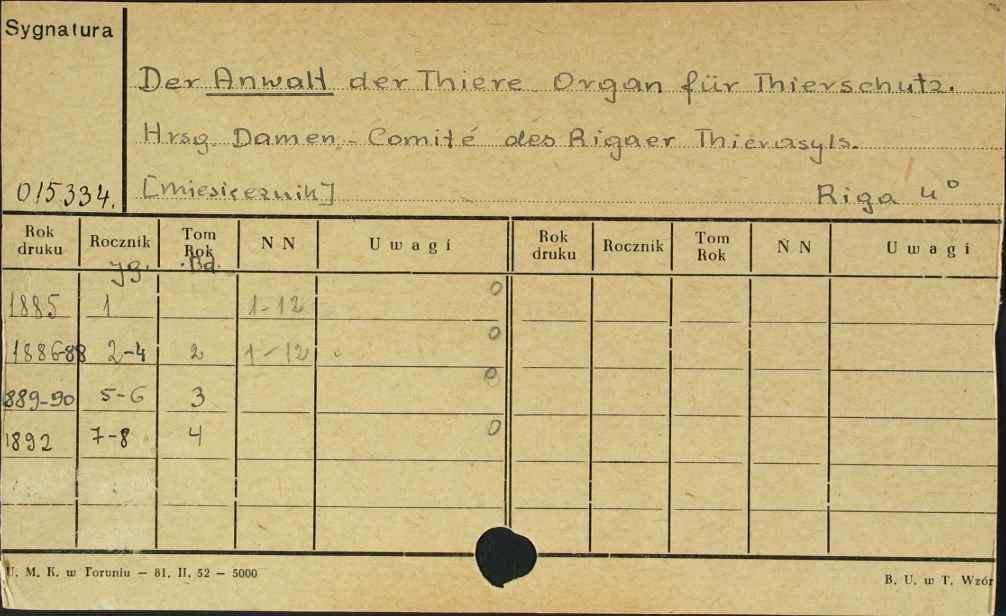 Sygnatura
Der Anwalt der Thiere Organ für Thierschutz.
Hrsg. Damen-Comité des Rigaer Thierasyls.
015334. [Miesięcznik] Riga 4°
Rok druku Rocznik Tom Rok N N Uwagi Rok druku Rocznik Tom Rok N N Uwagi
Jg. Bd.
1885 1 1-12 0
1886-88 2-4 2 1-12 0
889-90 5-6 3 0
1892 7-8 4 0
U. M. K. w Toruniu — 81. II. 52 — 5000
B. U. w T. Wzór